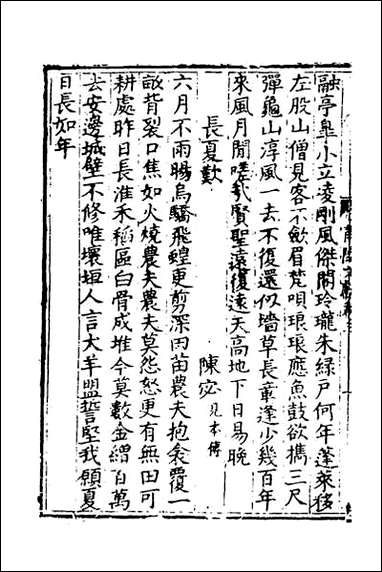 融亭皐小立凌剛風傑閣玲瓏朱綠戶何年蓬萊移
左股山僧見客不歛眉梵唄琅琅應魚鼓欲擕三尺
彈龜山淳風一去不復還似墻草長章逢少幾百年
來風月閒嗟我賢聖遠復遠天高地下日易晚
長夏歎
陳宓見本傳
六月不雨暘烏驕飛蝗更剪深田苗農夫抱衾覆一
畝背裂口焦如火燒農夫農夫莫怨怒更有無田可
耕處昨日長淮禾稻區白骨成堆今莫數金繒百萬
去安邊城壁不修唯壞垣人言犬羊盟誓堅我願夏
日長如年